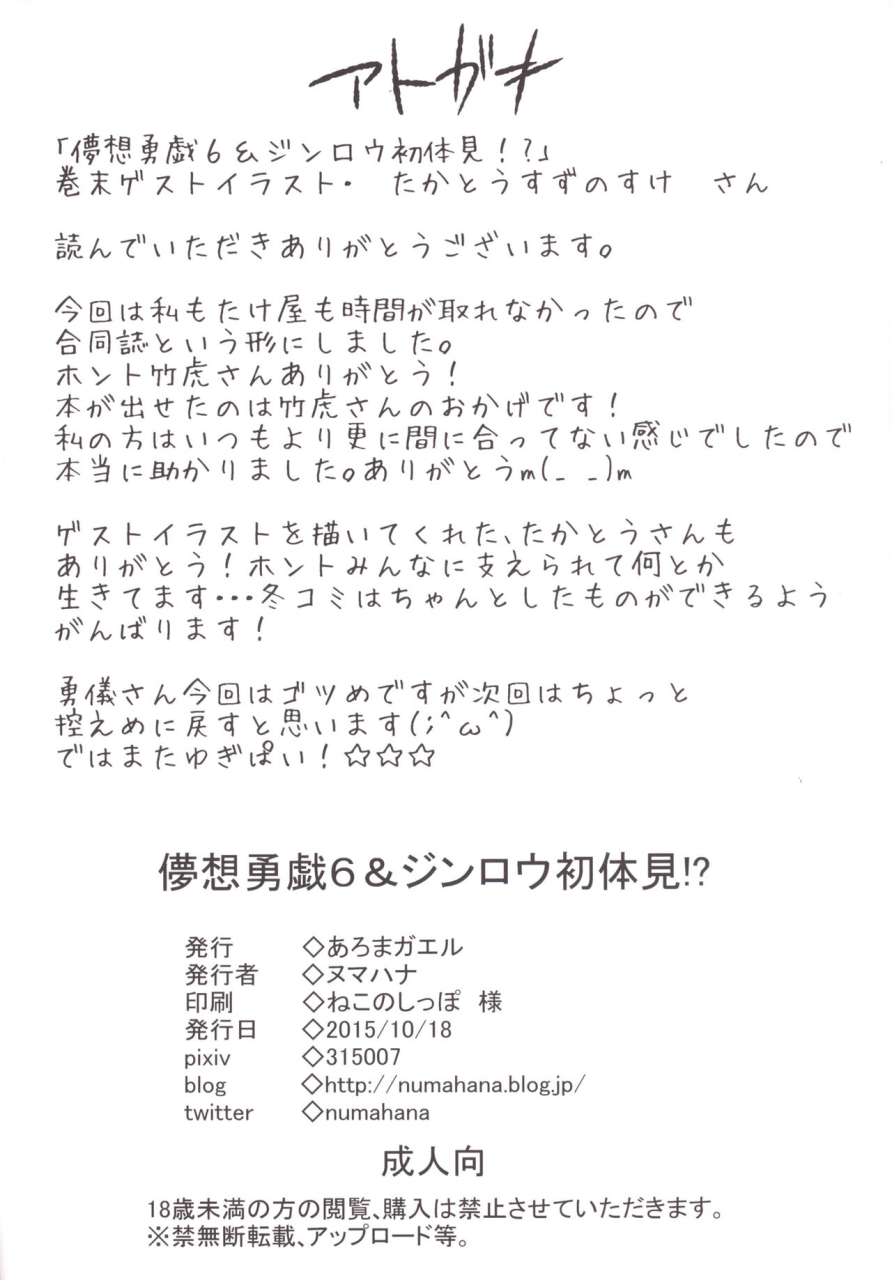 アトガキ
「儚想勇戯6&ジンロウ初体見!?」
巻末ゲストイラスト・ たかとうすずのすけ さん
読んでいただきありがとうございます。
今回は私もたけ屋も時間が取れなかったので
合同誌という形にしました。
ホント竹虎さんありがとう!
本が出せたのは竹虎さんのおかげです!
私の方はいつもより更に間に合ってない感じでしたので
本当に助かりました。ありがとうm(_ _)m
ゲストイラストを描いてくれた、たかとうさんも
ありがとう!ホントみんなに支えられて何とか
生きてます・・・冬コミはちゃんとしたものができるよう
がんばります!
勇儀さん今回はゴツめですが次回はちょっと
控えめに戻すと思います(;^ω^)
ではまたゆぎぱい!☆☆☆
儚想勇戯6&ジンロウ初体見!?
発行 ◇あろまガエル
発行者 ◇ヌマハナ
印刷 ◇ねこのしっぽ 様
発行日 ◇2015/10/18
pixiv ◇315007
blog ◇http://numahana.blog.jp/
twitter ◇numahana
成人向
18歳未満の方の閲覧、購入は禁止させていただきます。
※禁無断転載、アップロード等。